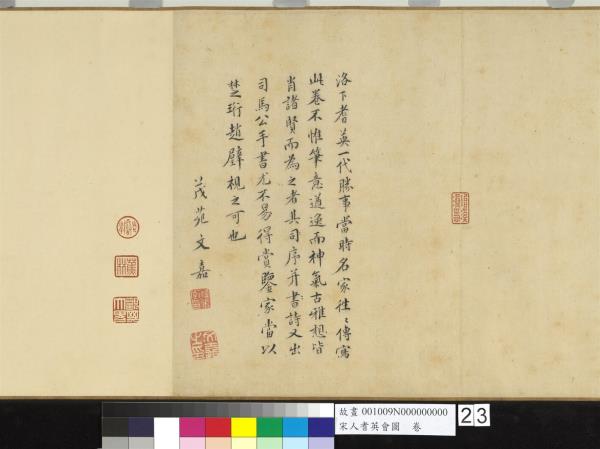 洛下耆英一代勝事當時名家往〻傳寫
此卷不惟筆意遒逸而神氣古雅想皆
肖諸賢而為之者其司序并書詩又出
司馬公手書尤不易得賞鑒家當以
楚珩趙璧視之可也
茂苑文嘉
故畫 001009N000000000
宋人耆英會圖 卷
23